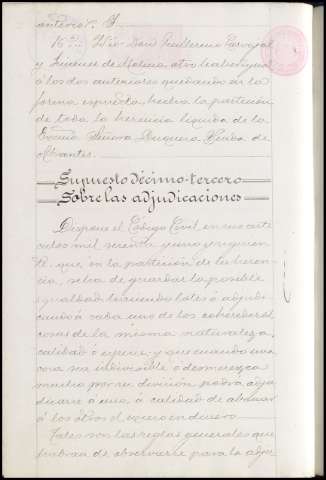 anterior. J.
16ª= Idio Don Guillermo Carvajal
y Jimenez de Molina otro haber igual
á los dos anteriores quedando en la
forma expresada, hecha la particion
de toda la herencia líquida de la
Excma Señora Duquesa Viuda de
Abrantes.
Supuesto décimo-tercero
Sobre las adjudicaciones
Dispone el Código Civil en sus artí
culos mil sesenta y uno y siguien
te que en la particion de la heren
cia, se ha de guardar la posible
igualdad haciendo lotes ó adjudi
cando á cada uno de los coherederos
cosas de la misma naturaleza,
calidad ó especie; y que cuando una
cosa sea indivisible ó desmerezca
mucho por su division podrá adju
dicarse á uno, á calidad de abonar
á los otros el exceso en dinero.
Tales son las reglas generales que
habrán de observarse para la adju